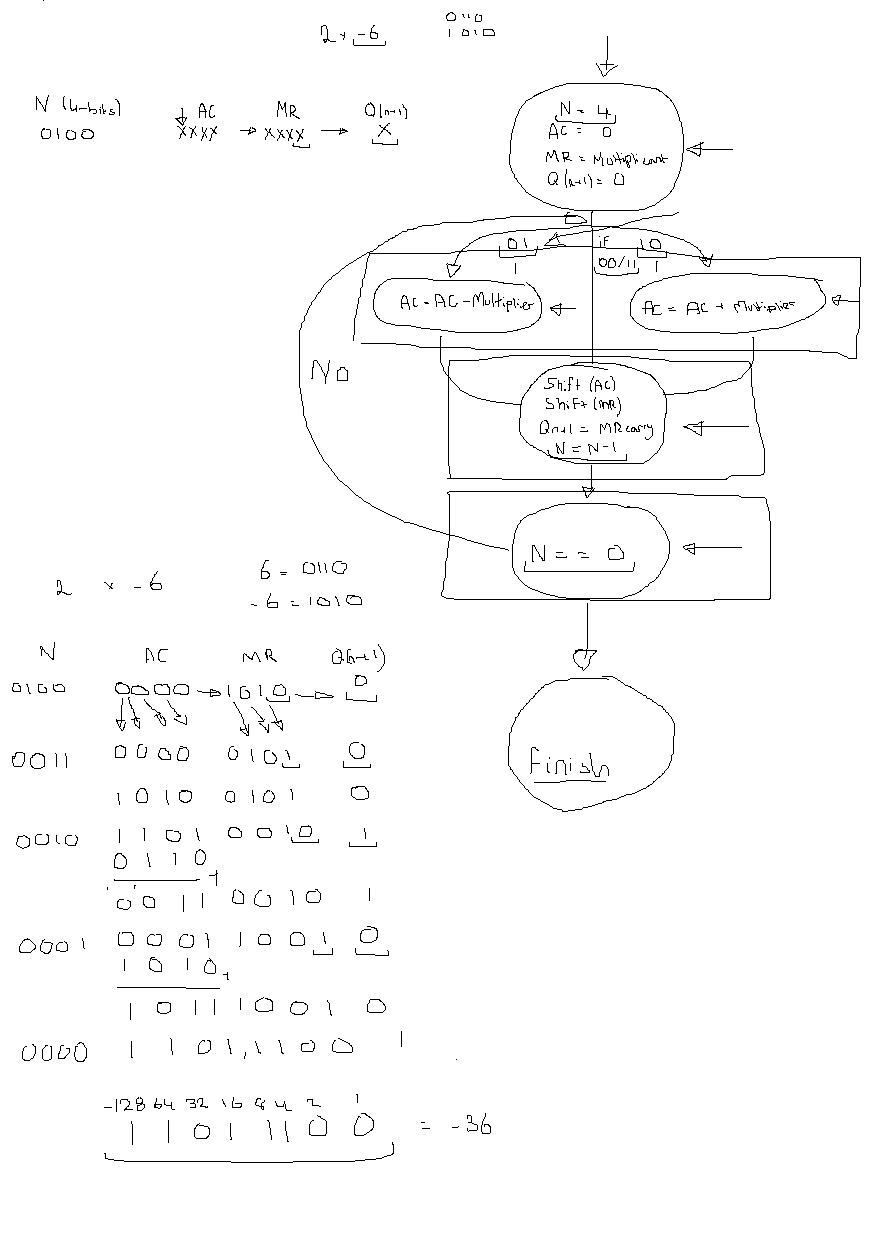 2 * -6
0110
1010
N (4-bits) AC MR Q(n+1)
0100 xxxx xxxx x
N = 4
AC = 0
MR = Multiplicant
Q(n+1) = 0
01 if 10
1 00/11 1
AC = AC - Multiplier
AC = AC + Multiplier
No
Shift (AC)
Shift (MR)
Qn+1 = MR carry
N = N-1
N = = 0
Finish
2 * -6
6 = 0110
-6 = 1010
N AC MR Q(n+1)
0100 0000 1010 0
0011 0000 0101 0
1010 0101 0
0010 1101 0010 1
0110 +
0011 0010 1
0001 0001 1001 0
1010 +
1011 1001 0
0000 1101,1100 1
-128 64 32 16 8 4 2 1
1 1 0 1 1 1 0 0 = -36